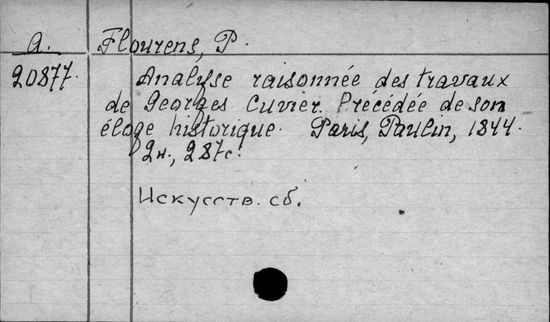 A. Flourens, P.
20877. Analyse raisonnée des travaux
de Georges Cuvier. Précédée de son
éloge historique. Paris, Paulin, 1844.
2н., 287с.
Искусств. сб.